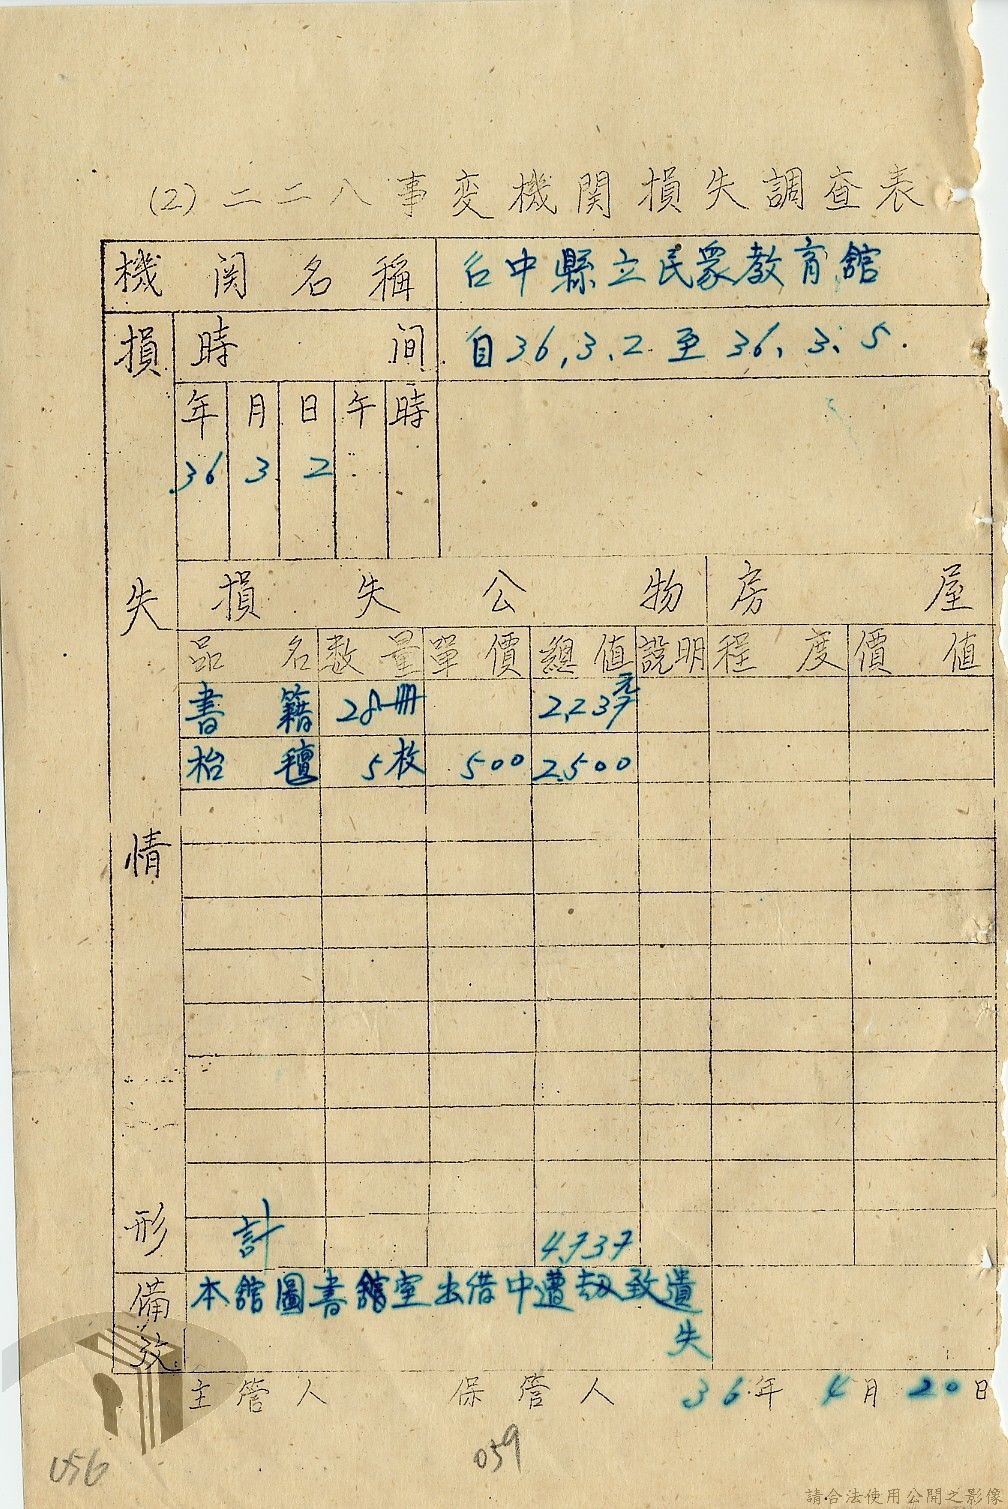 (2)二二八事変機関損失調查表
機関名稱 台中縣立民眾教育館
損 時间 自36,3,2至36,3,5.
年 月 日 午 時
36 3 2
失 損失公物 房屋
品名 数量 單價 總值 說明 程度 價值
書籍 28冊 2,237元
枱氊 5枚 500 2,500
情
形 計 4,737
備 本館圖書館室出借中遭劫致遺
失
攷
主管人 保管人 36年4月20日
056 059
請合法使用公開之影像